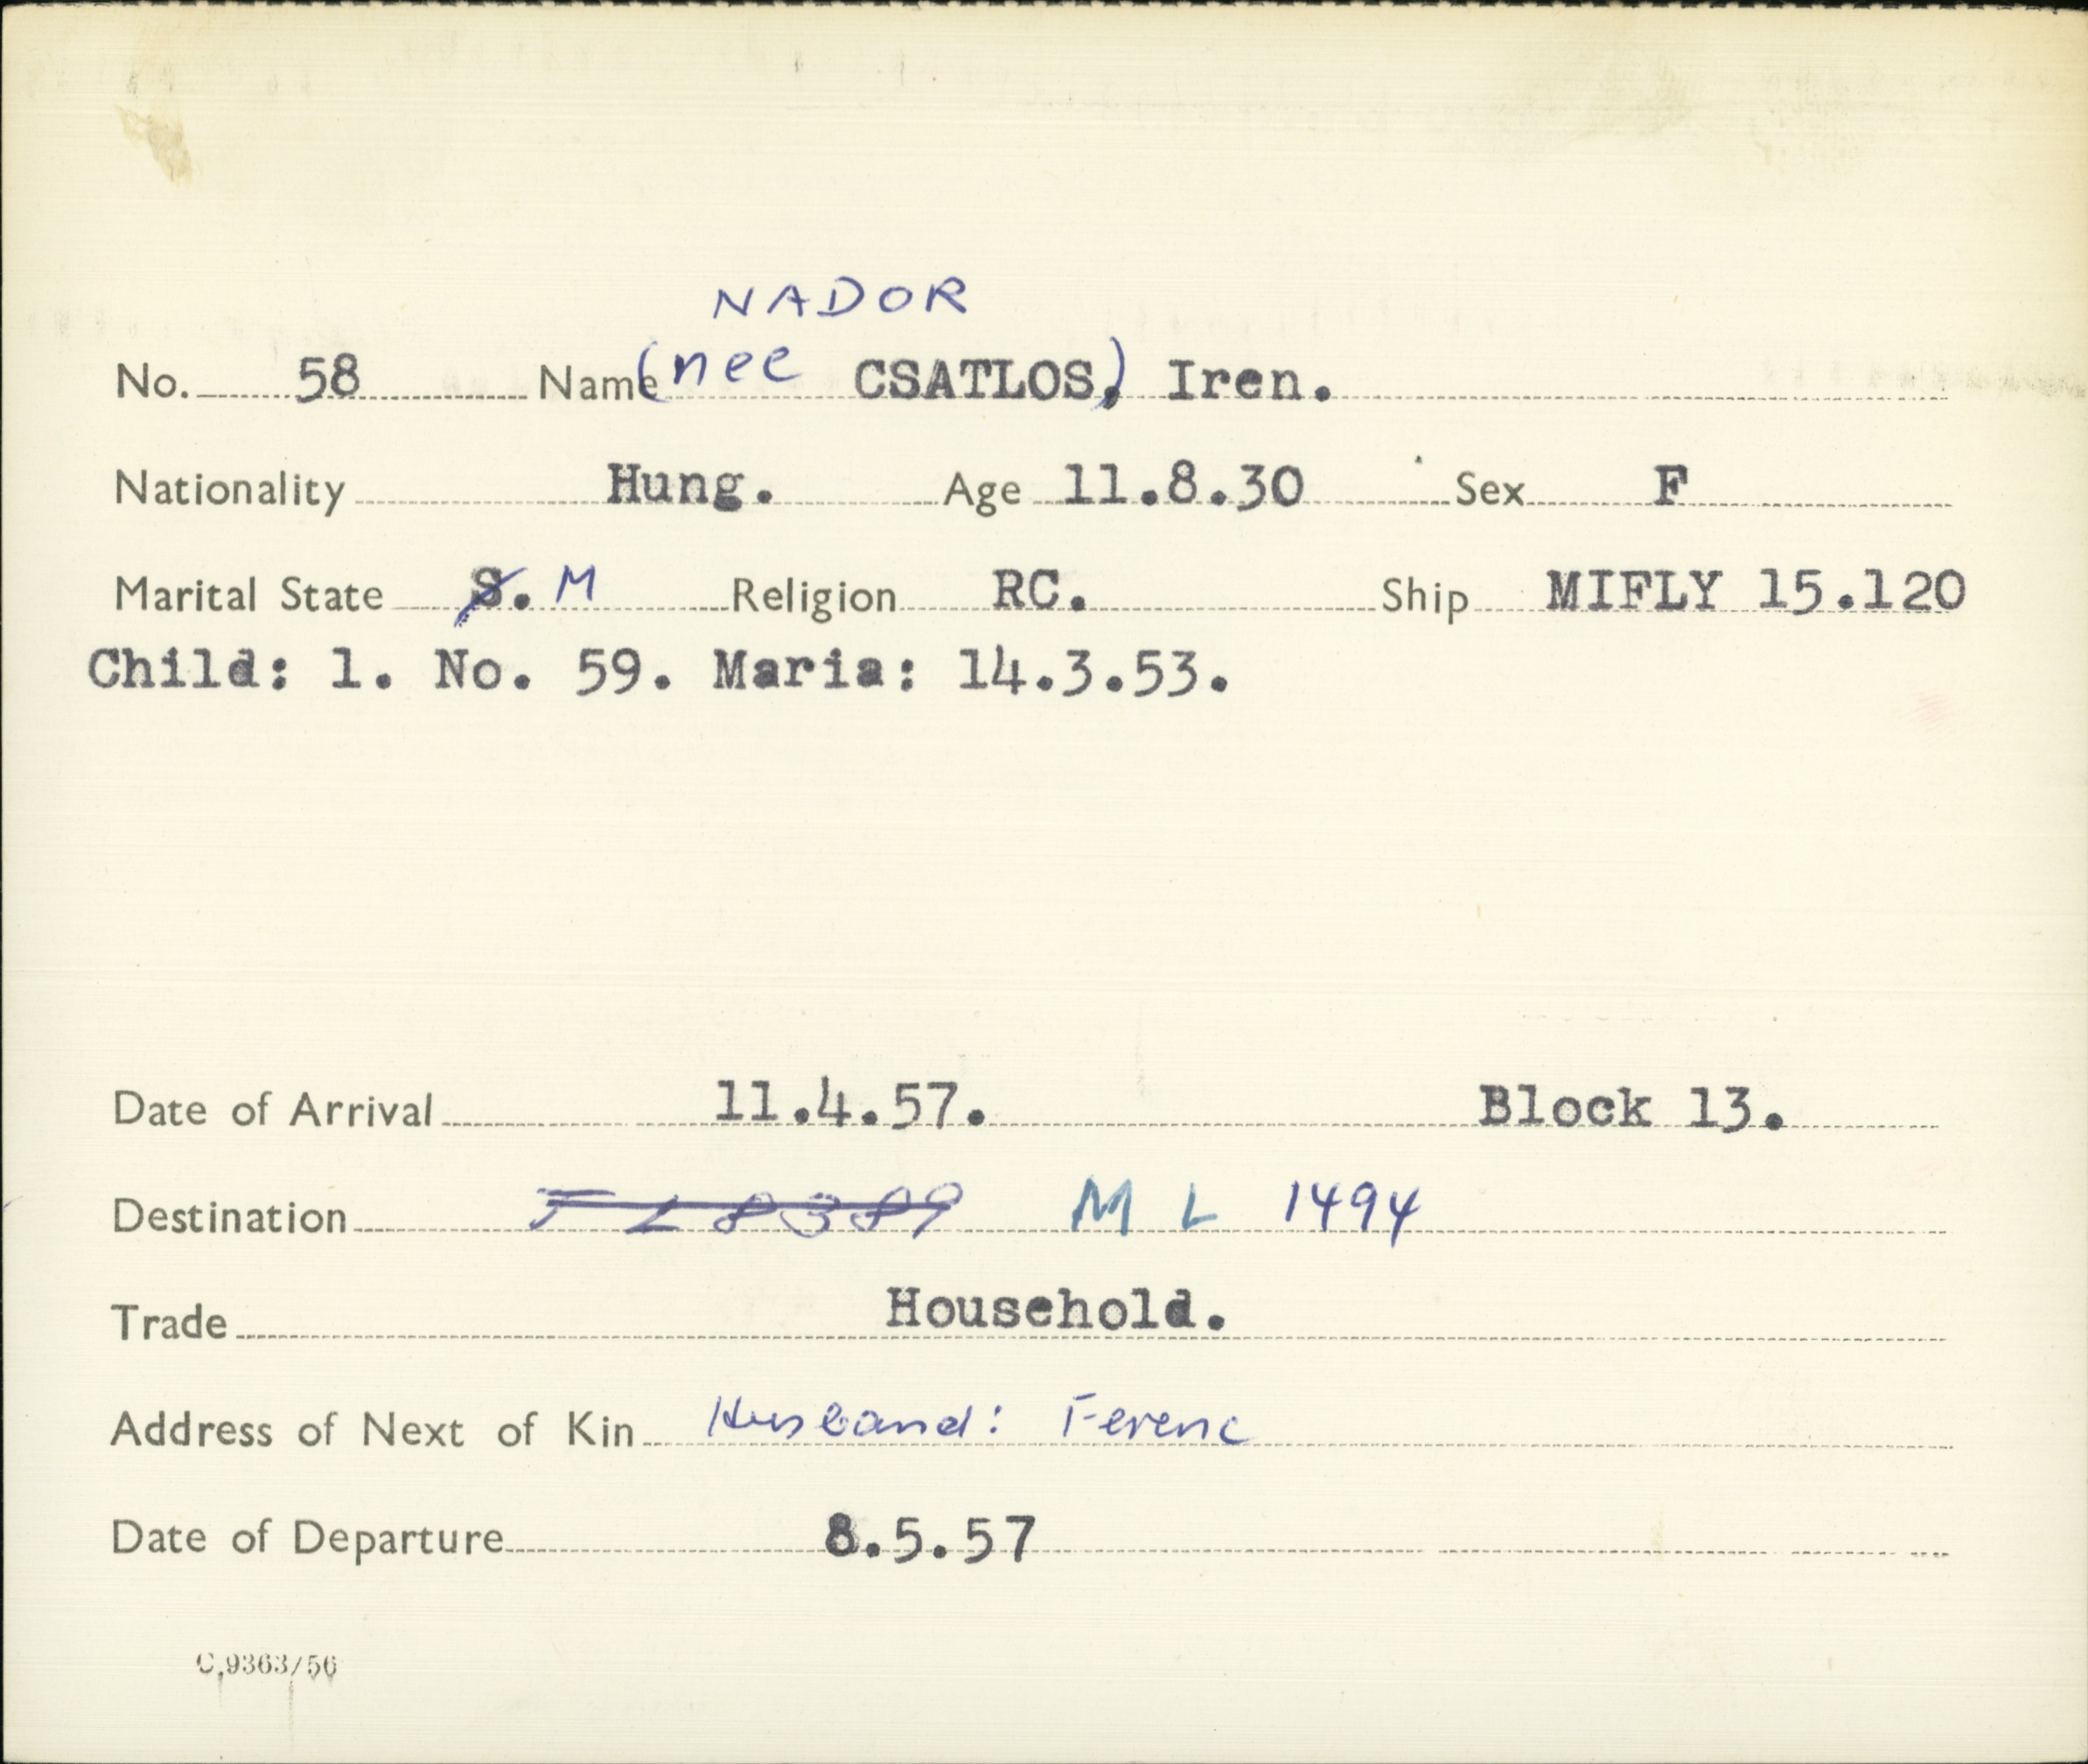 NADOR
No. 58 Name (nee CSATLOS,) Iren.
Nationality Hung. Age 11.8.30 Sex F
Marital State S. M Religion RC. Ship MIFLY 15.120
Child: 1. No. 59. Maria: 14.3.53.
Date of Arrival 11.4.57. Block 13.
Destination F L 8389 M L 1494
Trade Household.
Address of Next of Kin Husband: Ferenc
Date of Departure 8.5.57
C.9363/56